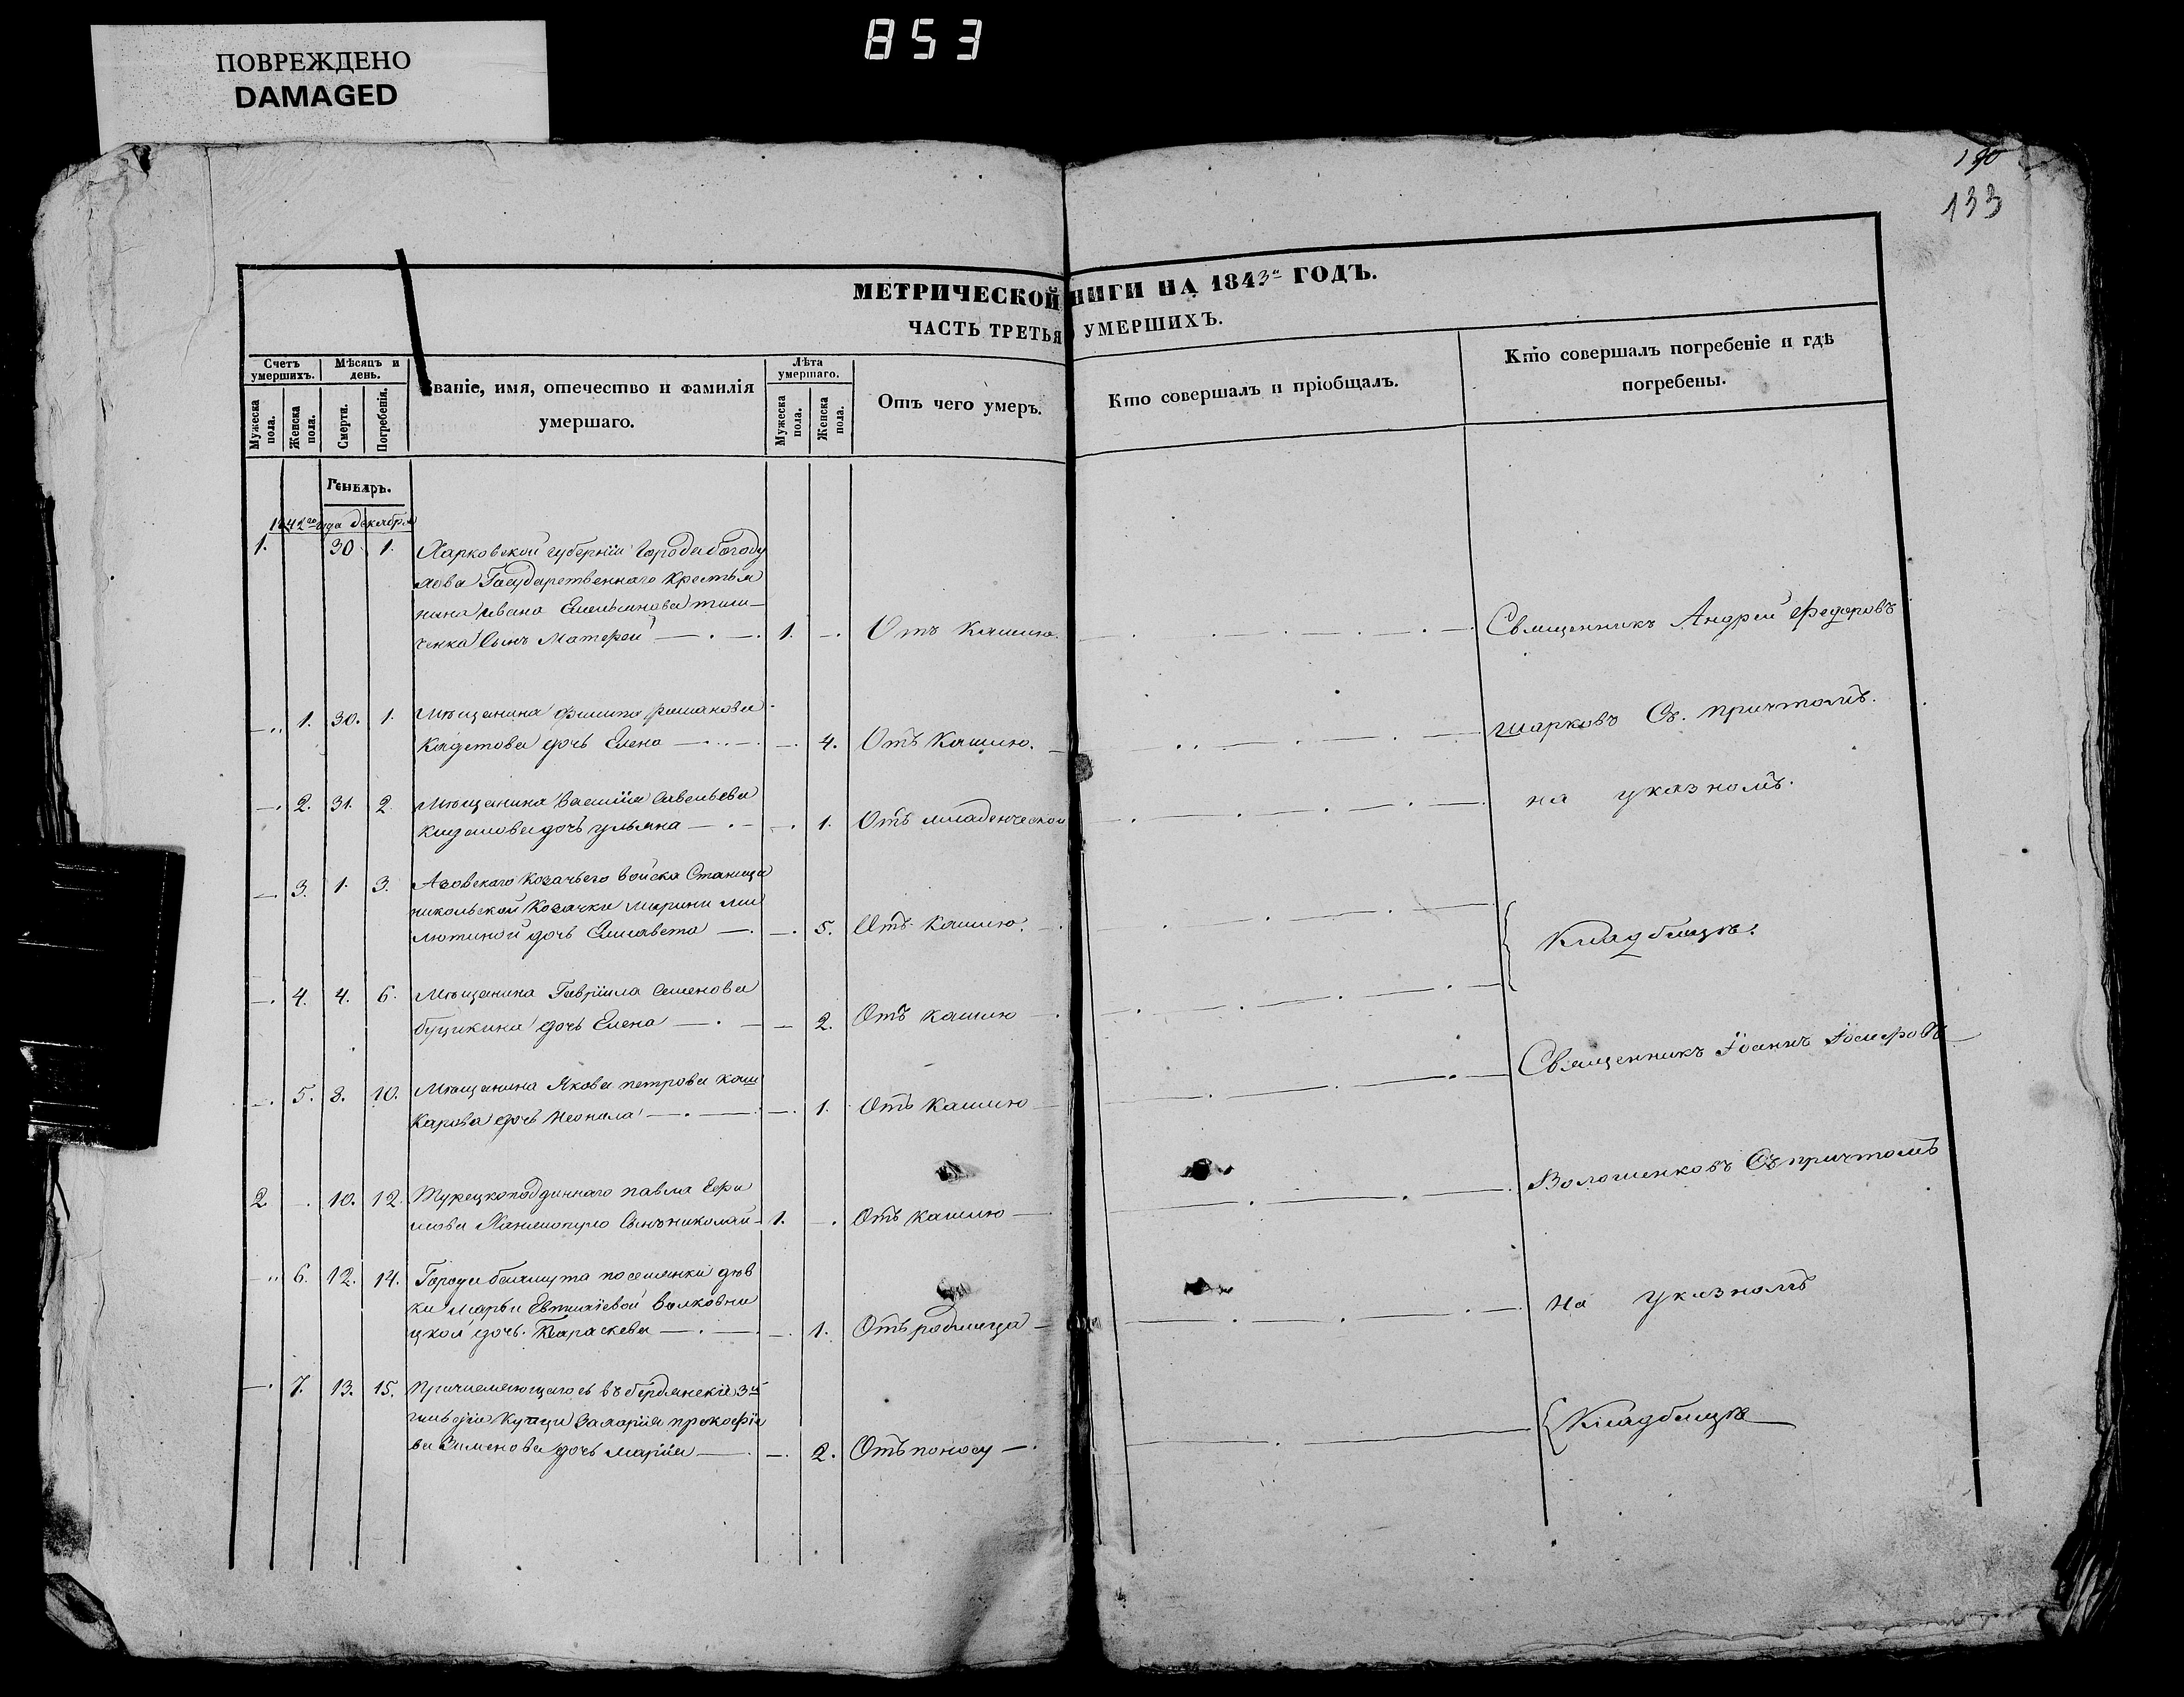 853
ПОВРЕЖДЕНО
DAMAGED
190
133
МЕТРИЧЕСКОЙ НИГИ НА 1843й ГОДЪ.
ЧАСТЬ ТРЕТЬЯ УМЕРШИХЪ.
Счетъ умершихъ.
Мѣсяцъ и день.
Званіе, имя, отечество и фамилія умершаго.
Лѣта умершаго.
Отъ чего умеръ.
Кто совершалъ и пріобщалъ.
Кто совершалъ погребеніе и гдѣ погребены.
Мужеска пола.
Женска пола.
Смерти.
Погребенія.
Мужеска пола.
Женска пола.
Генварь.
1842го года декабря
1. 30 1. Харковской губерніи города богоду
хова Государственнаго крестья
нина ивана Емельянова
ченка сынъ Матфей 1. Отъ кашлю. Священникъ Андрей Федоровъ
1. 30. 1. Мѣщанина филипа
Кадетова дочь Елена 4. Отъ Кашлю. шарковъ Съ. причтомъ.
2. 31. 2 Мѣщанина Василія Савельева
дочь ульяна 1. Отъ младенческой на указномъ.
3. 1. 3. Азовскаго Козачьего войска Станицы
никольской Козачки Марини ми
лютиной дочь Елисавета 5. Отъ Кашлю. Кладбищѣ.
4. 4. 6. Мѣщанина Гавріила Семенова
буцикина дочь Елена 2. Отъ кашлю
Священникъ Іоаннъ
5. 8. 10. Мѣщанина Якова петрова каш
карова дочь Неонила 1. Отъ Кашлю
2 10. 12. Турецкоподданнаго павла Ефи
мова сынъ николай 1. Отъ кашлю Волошенковъ Съ причтомъ
6. 12. 14. Города бахмута поселянки дѣв
ки марьи Евтихіевой волковни
цкой дочь Параскева 1. Отъ родимца на указномъ
7. 13. 15. Причисляющагось въ бердянскіе 3й
гильдіи Купцы Захарія прокофіе
ва Зименова дочь марія 2. Отъ поносу Кладбищѣ